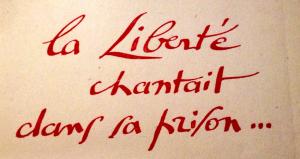 la Liberté
chantait
dans sa prison...